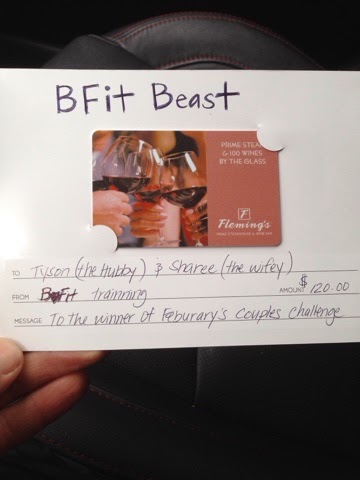 BFit Beast
PRIME STEAK
& 100 WINES
BY THE GLASS
F
Fleming's
PRIME STEAKHOUSE & WINE BAR
TO Tyson (the Hubby) & Sharee (the wifey)
FROM BFit trainning AMOUNT $120.00
MESSAGE To the winner of Feburary's couples challenge